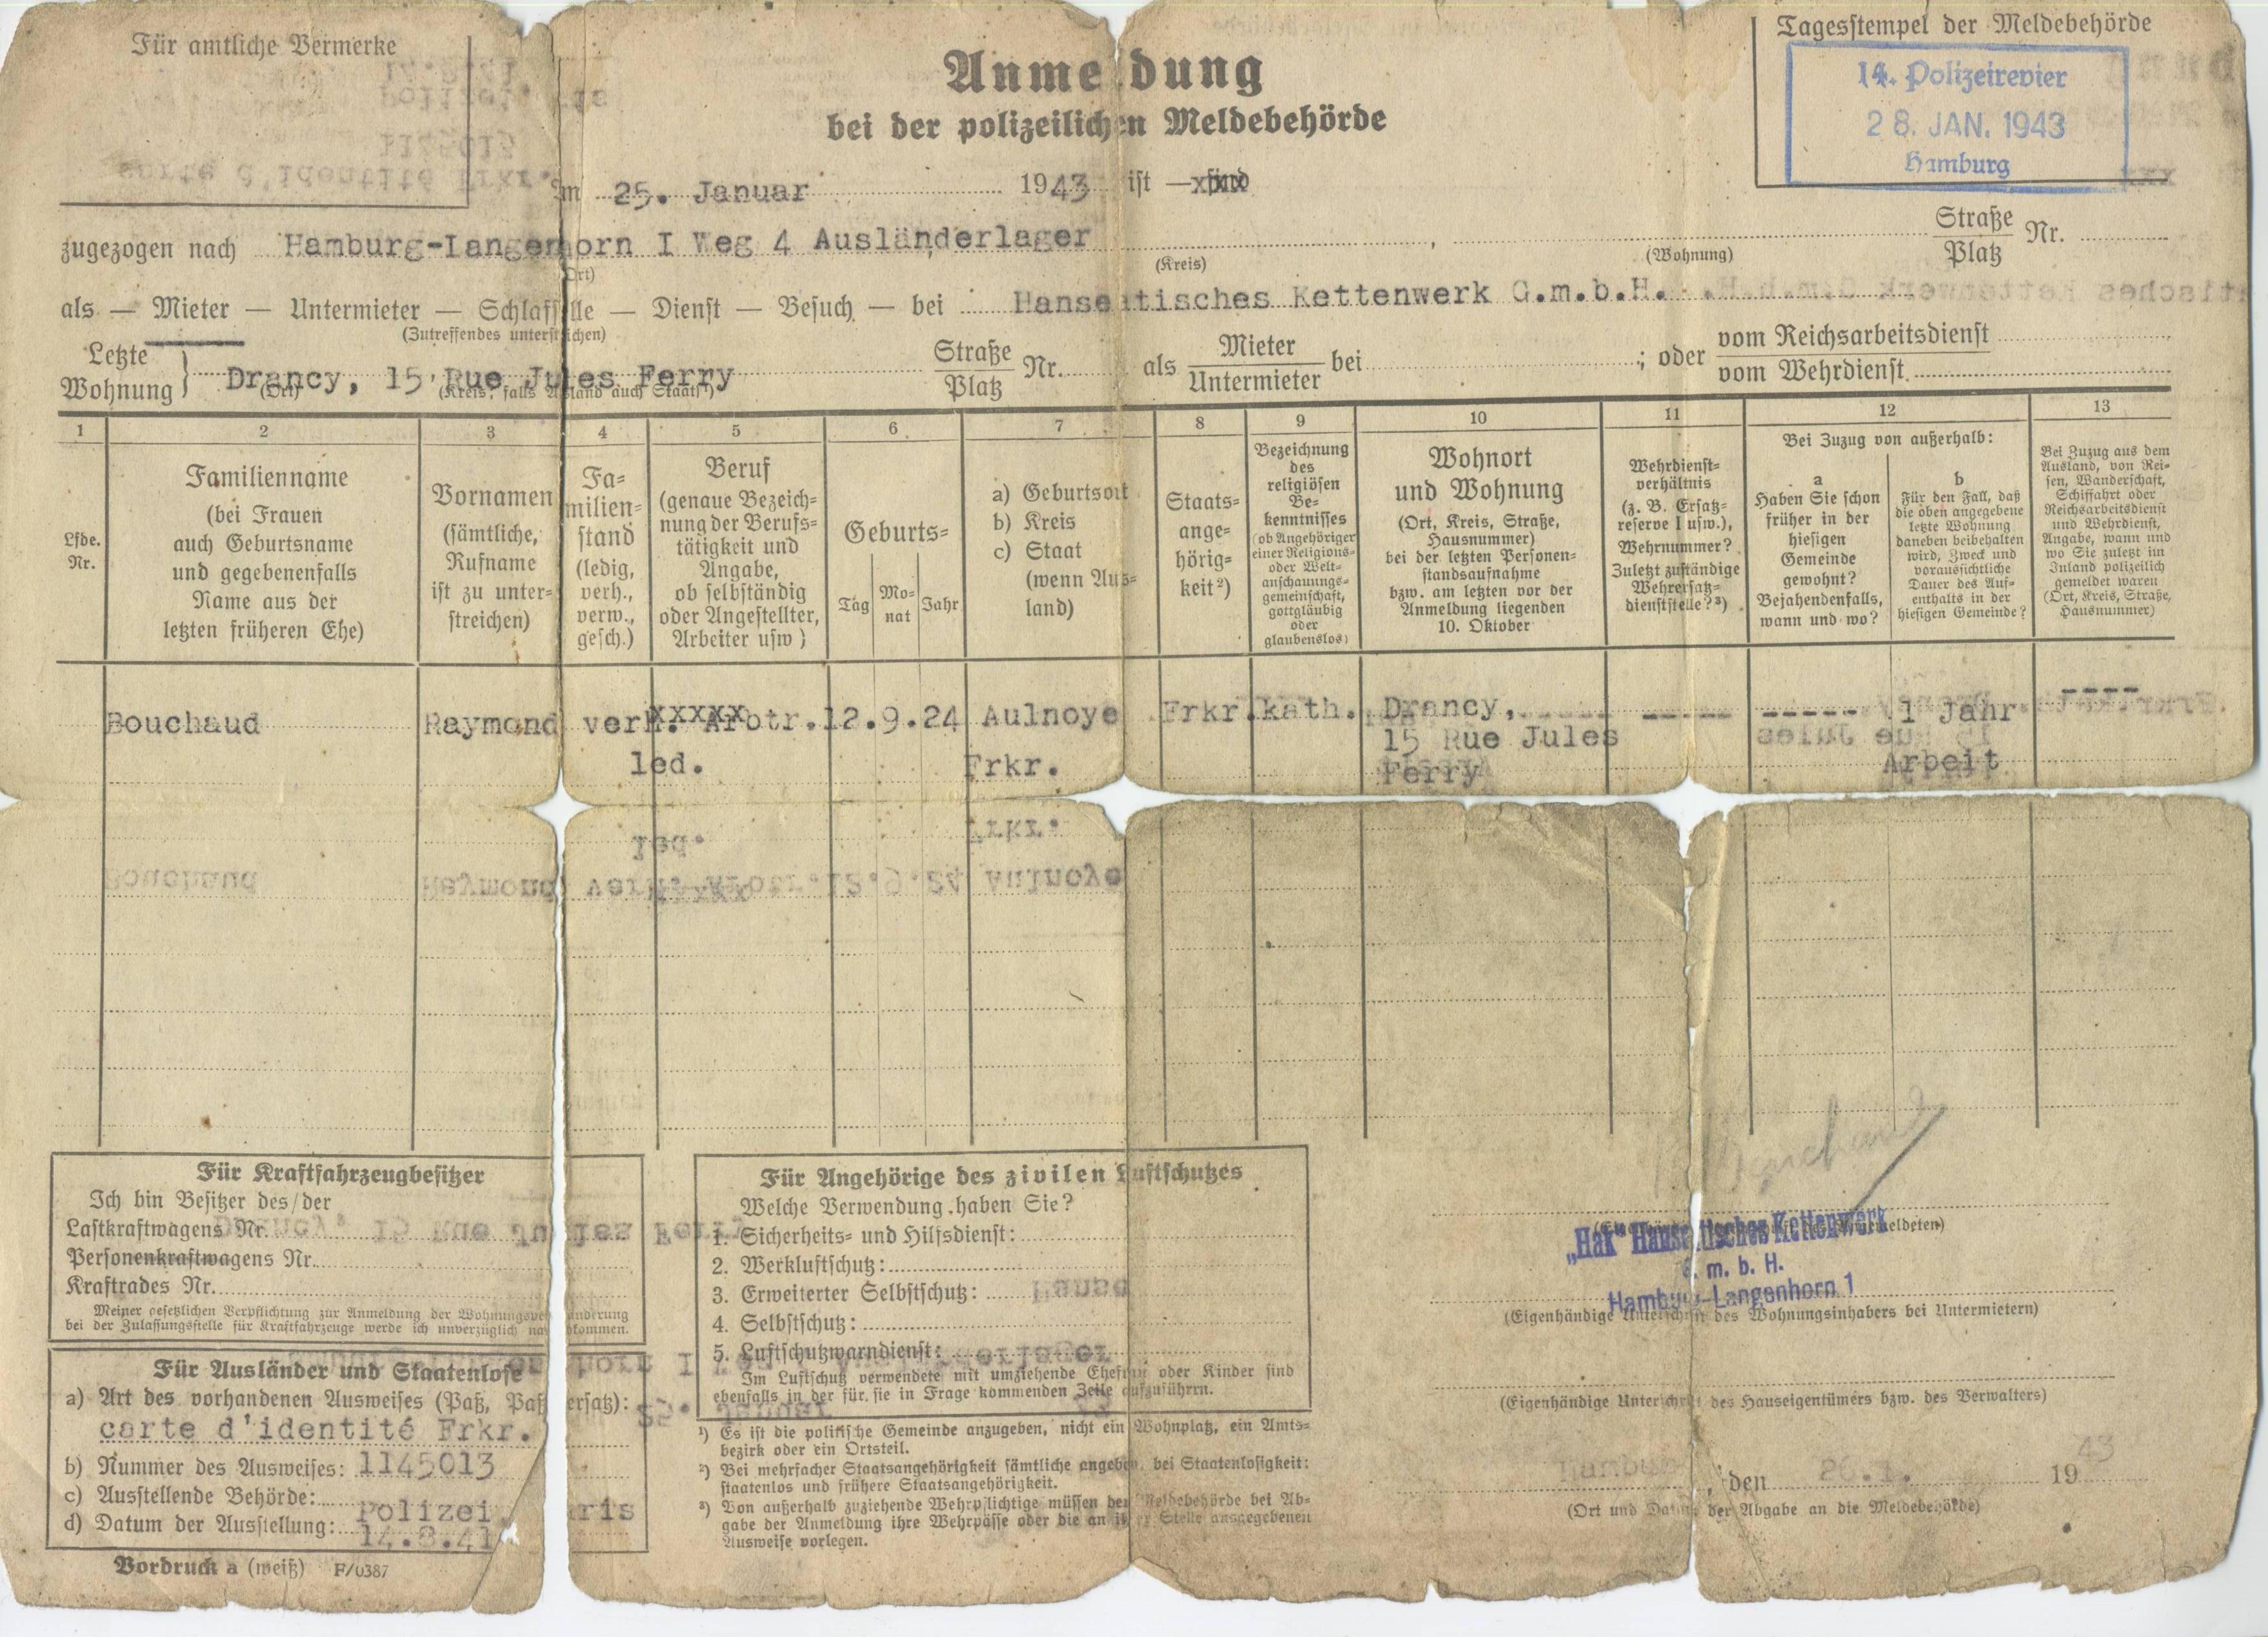 Für amtliche Vermerke
Anmeldung
bei der polizeilichen Meldebehörde
Tagesstempel der Meldebehörde
14. Polizeirevier
28. JAN. 1943
Hamburg
Am 25. Januar 1943 ist — sind
zugezogen nach Hamburg-Langenhorn I Weg 4 Ausländerlager Straße Platz Nr.
(Ort) (Kreis) (Wohnung)
als — Mieter — Untermieter — Schlafstelle — Dienst — Besuch — bei Hanseatisches Kettenwerk G.m.b.H.
(Zutreffendes unterstreichen)
Letzte Wohnung } Drancy, 15 Rue Jules Ferry Straße Platz Nr. als Mieter Untermieter bei ; oder vom Reichsarbeitsdienst vom Wehrdienst
(Ort) (Kreis, falls Ausland auch Staat¹)
1 2 3 4 5 6 7 8 9 10 11 12 13
Lfde. Nr.
Familienname
(bei Frauen
auch Geburtsname
und gegebenenfalls
Name aus der
letzten früheren Ehe)
Vornamen
(sämtliche,
Rufname
ist zu unter-
streichen)
Fa-
milien-
stand
(ledig,
verh.,
verw.,
gesch.)
Beruf
(genaue Bezeich-
nung der Berufs-
tätigkeit und
Angabe,
ob selbständig
oder Angestellter,
Arbeiter usw)
Geburts-
Tag Mo-nat Jahr
a) Geburtsort
b) Kreis
c) Staat
(wenn Aus-
land)
Staats-
ange-
hörig-
keit²)
Bezeichnung
des
religiösen
Be-
kenntnisses
(ob Angehöriger
einer Religions-
oder Welt-
anschauungs-
gemeinschaft,
gottgläubig
oder
glaubenslos)
Wohnort
und Wohnung
(Ort, Kreis, Straße,
Hausnummer)
bei der letzten Personen-
standsaufnahme
bzw. am letzten vor der
Anmeldung liegenden
10. Oktober
Wehrdienst-
verhältnis
(z. B. Ersatz-
reserve I usw.),
Wehrnummer?
Zuletzt zuständige
Wehrersatz-
dienststelle?³)
Bei Zuzug von außerhalb:
a
Haben Sie schon
früher in der
hiesigen
Gemeinde
gewohnt?
Bejahendenfalls,
wann und wo?
b
Für den Fall, daß
die oben angegebene
letzte Wohnung
daneben beibehalten
wird, Zweck und
voraussichtliche
Dauer des Auf-
enthalts in der
hiesigen Gemeinde?
Bei Zuzug aus dem
Ausland, von Rei-
sen, Wanderschaft,
Schiffahrt oder
Reichsarbeitsdienst
und Wehrdienst,
Angabe, wann und
wo Sie zuletzt im
Inland polizeilich
gemeldet waren
(Ort, Kreis, Straße,
Hausnummer)
Bouchaud Raymond verh. xxxxx Arbtr. 12.9.24 Aulnoye Frkr. kath. Drancy, ----- ----- ----- 1 Jahr ----
15 Rue Jules
led. Frkr. Ferry Arbeit
Für Kraftfahrzeugbesitzer
Ich bin Besitzer des/der
Lastkraftwagens Nr.
Personenkraftwagens Nr.
Kraftrades Nr.
Meiner gesetzlichen Verpflichtung zur Anmeldung der Wohnungsveränderung
bei der Zulassungsstelle für Kraftfahrzeuge werde ich unverzüglich nachkommen.
Für Ausländer und Staatenlose
a) Art des vorhandenen Ausweises (Paß, Paßersatz):
carte d'identité Frkr.
b) Nummer des Ausweises: 1145013
c) Ausstellende Behörde: Polizei, Paris
d) Datum der Ausstellung: 14.8.41
Vordruck a (weiß) F/0387
Für Angehörige des zivilen Luftschutzes
Welche Verwendung haben Sie?
1. Sicherheits- und Hilfsdienst:
2. Werkluftschutz:
3. Erweiterter Selbstschutz:
4. Selbstschutz:
5. Luftschutzwarndienst:
Im Luftschutz verwendete mit umziehende Ehefrau oder Kinder sind
ebenfalls in der für sie in Frage kommenden Zeile aufzuführen.
¹) Es ist die politische Gemeinde anzugeben, nicht ein Wohnplatz, ein Amts-
bezirk oder ein Ortsteil.
²) Bei mehrfacher Staatsangehörigkeit sämtliche angeben, bei Staatenlosigkeit:
staatenlos und frühere Staatsangehörigkeit.
³) Von außerhalb zuziehende Wehrpflichtige müssen der Meldebehörde bei Ab-
gabe der Anmeldung ihre Wehrpässe oder die an ihrer Stelle ausgegebenen
Ausweise vorlegen.
Bouchaud
„Hak“ Hanseatisches Kettenwerk
G. m. b. H.
Hamburg-Langenhorn 1
(Eigenhändige Unterschrift des Wohnungsinhabers bei Untermietern)
(Eigenhändige Unterschrift des Hauseigentümers bzw. des Verwalters)
Hamburg, den 26.1. 1943
(Ort und Datum der Abgabe an die Meldebehörde)